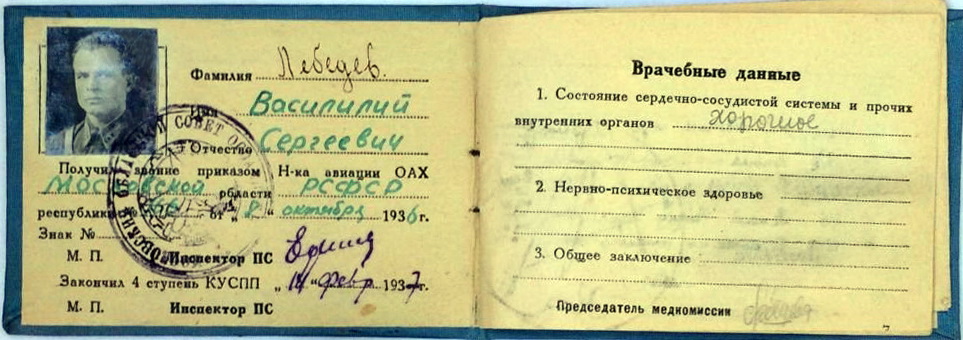 Фамилия Лебедев.
Имя Василилий
Отчество Сергеевич
Получил звание приказом Н-ка авиации ОАХ
Московской области РСФСР
республики № от „ 8 “ октября 1936 г.
Знак №
М. П. Инспектор ПС
Закончил 4 ступень КУСПП „ “ февр 1937 г.
М. П. Инспектор ПС
Врачебные данные
1. Состояние сердечно-сосудистой системы и прочих
внутренних органов хорошие
2. Нервно-психическое здоровье
3. Общее заключение
Председатель медкомиссии
7